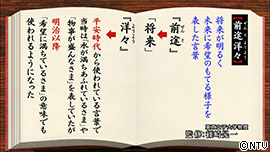 【前途洋々】
将来が明るく
未来に希望のもてる様子を
表した言葉
『前途』
『将来』
『洋々』
平安時代から使われている言葉で
当時は、「水が満ちあふれているさま」や
「物事が盛んなさま」を表していたが
明治以降
「希望に満ちているさま」の意味も
使われるようになった
©NTV